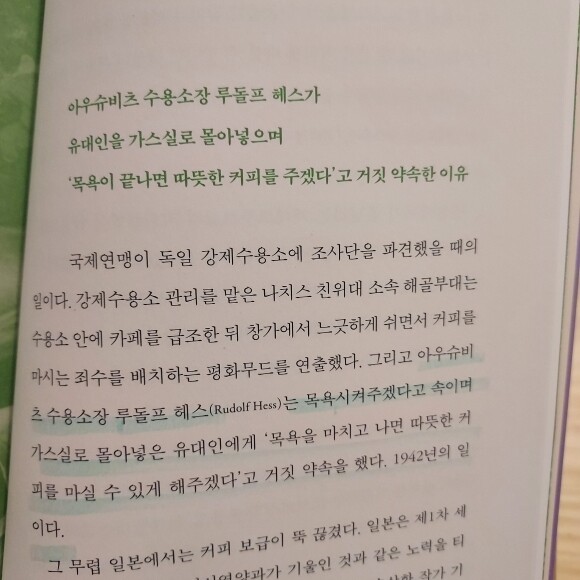 아우슈비츠 수용소장 루돌프 헤스가
유대인을 가스실로 몰아넣으며
‘목욕이 끝나면 따뜻한 커피를 주겠다’고 거짓 약속한 이유
국제연맹이 독일 강제수용소에 조사단을 파견했을 때의
일이다. 강제수용소 관리를 맡은 나치스 친위대 소속 해골부대는
수용소 안에 카페를 급조한 뒤 창가에서 느긋하게 쉬면서 커피를
마시는 죄수를 배치하는 평화무드를 연출했다. 그리고 아우슈비
츠 수용소장 루돌프 헤스(Rudolf Hess)는 목욕시켜주겠다고 속이며
가스실로 몰아넣은 유대인에게 ‘목욕을 마치고 나면 따뜻한 커
피를 마실 수 있게 해주겠다’고 거짓 약속을 했다. 1942년의 일
이다.
그 무렵 일본에서는 커피 보급이 뚝 끊겼다. 일본은 제1차 세
기울인 것과 같은 노력을 티
작가 기